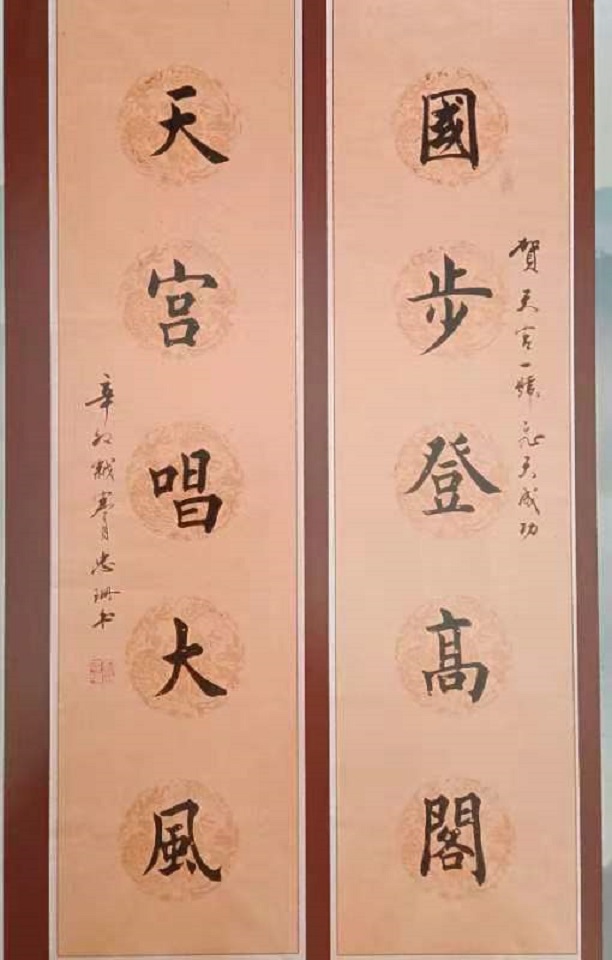 國步登高閣
賀天宮一號飛天成功
天宮唱大風
辛卯歲寒月忠珊書